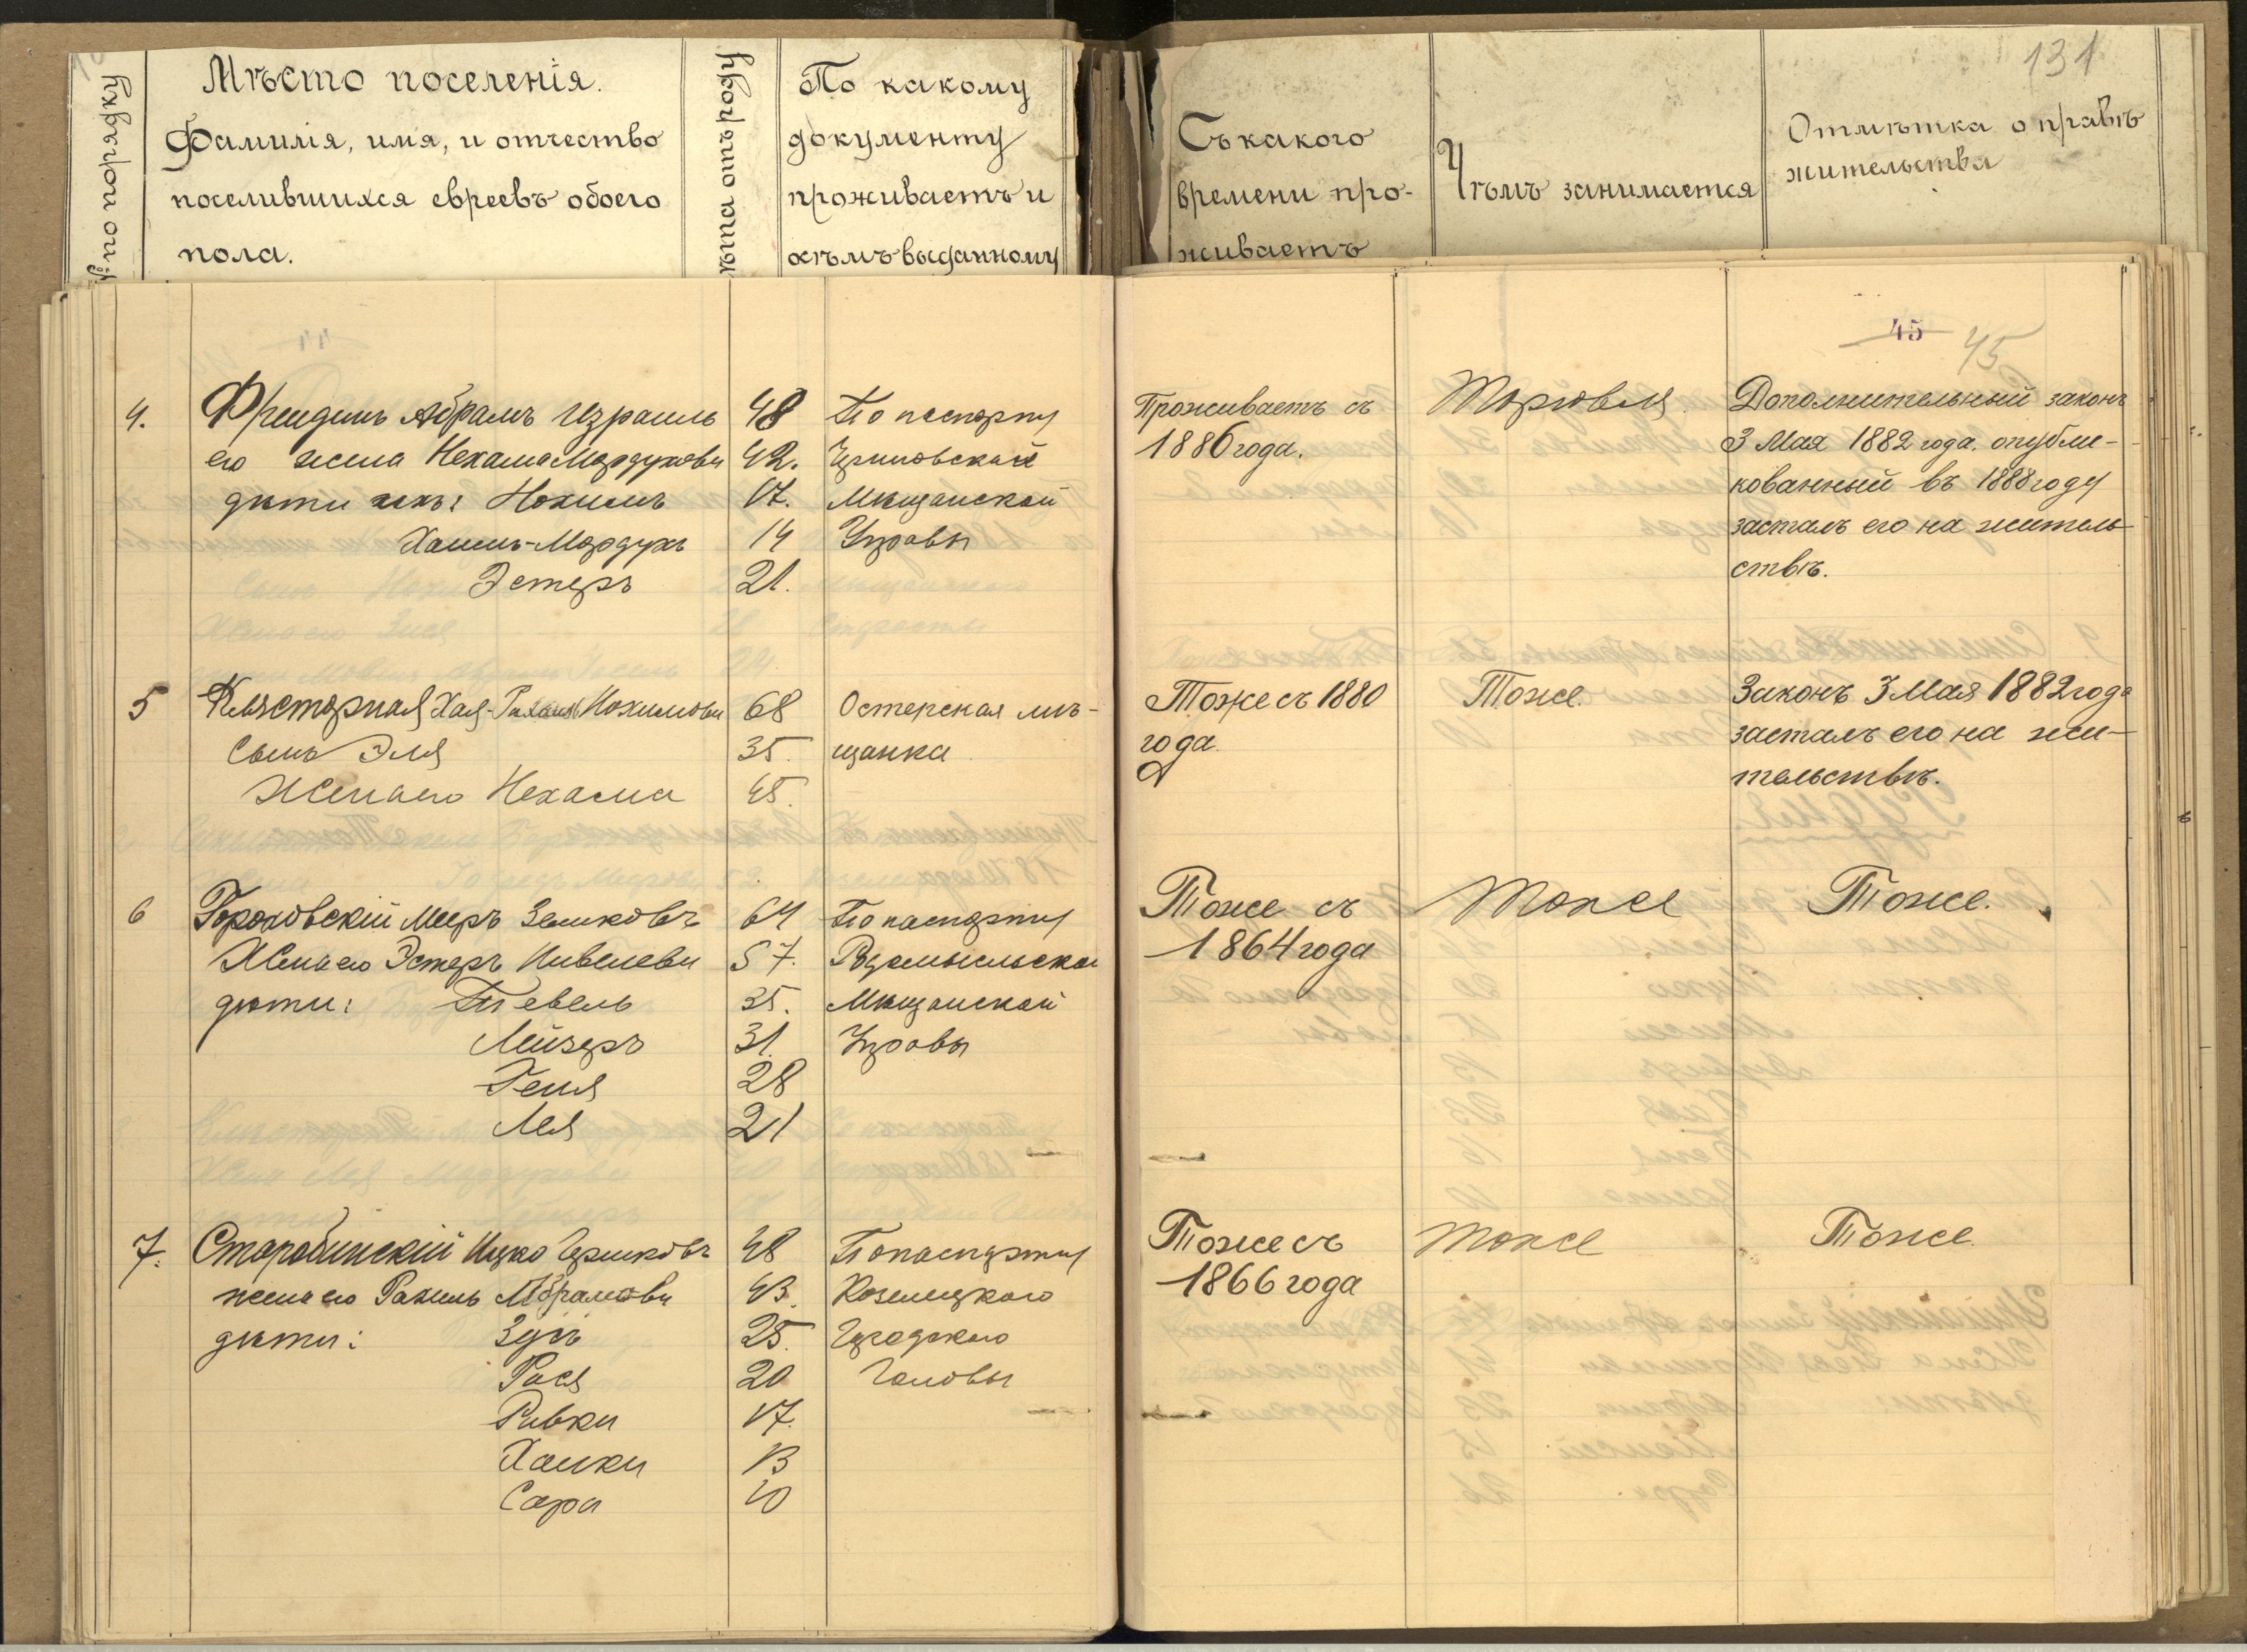 № по порядку
Мѣсто поселенія.
Фамилія, имя, и отчество
поселившихся евреевъ обоего
пола.
лѣта отъ роду
По какому
документу
проживаетъ и
кѣмъ выданному
Съ какого
времени про-
живаетъ
Чѣмъ занимается
Отмѣтка о правѣ
жительства
131
45
45
4. Фрейдинъ Абрамъ Израиль 48 По паспорту
его жена Нехама Мордухова 42.
дѣти ихъ: Нохимъ 17. Мѣщанской
Хаимъ-Мордухъ 14 Управы
Эстеръ 21.
Проживаетъ съ
1886 года.
Торговля
Дополнительный законъ
3 Мая 1882 года. опубли-
кованный въ 1888 году
засталъ его на житель-
ствѣ.
5 Клясторная Хая- Нохимова 68 Остерская мѣ-
Сынъ Эля 35. щанка
Жена его Нехама 45.
Тоже съ 1880
года.
Тоже.
Законъ 3 Мая 1882 года
засталъ его на жи-
тельствѣ.
6 Гороховскій Мееръ 64 По паспорту
Жена его Эстеръ 57. Радомысльской
дѣти: Тевель 35. Мѣщанской
Лейзеръ 31. Управы
Геня 28
Лея 21
Тоже съ
1864 года
Тоже
Тоже.
7. Старобинскій Ицко 48 По паспорту
жена его Рахиль Абрамова 43. Козелецкого
дѣти: Зусь 25. Городского
Рася 20 Головы
Ривки 17.
Ханки 13
Сара 10
Тоже съ
1866 года
Тоже
Тоже